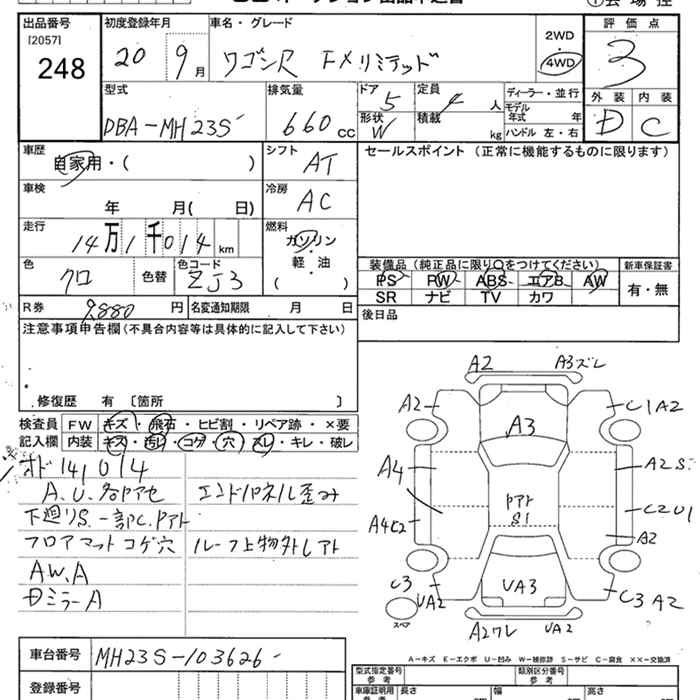 出品番号
[2057]
248
初度登録年月
20 9月
車名・グレード
ワゴンR FXリミテッド
2WD
4WD
評価点
3
外装 内装
D C
型式
DBA-MH23S
排気量
660cc
ドア 5
形状 W
定員 4人
積載 kg
ディーラー・並行
モデル年式 年
ハンドル 左・右
車歴
自家用・( )
シフト AT
セールスポイント (正常に機能するものに限ります)
車検
年 月( 日)
冷房 AC
走行
14万1千014km
燃料
ガソリン
・
軽・油
( )
色 クロ 色替
色コード ZJ3
装備品 (純正品に限り○をつけてください)
PS PW ABS エアB AW
SR ナビ TV カワ
新車保証書
有・無
R券 9,880円
名変通知期限 月 日
後日品
注意事項申告欄(不具合内容等は具体的に記入して下さい)
修復歴 有 〔箇所 〕
検査員記入欄
FW キズ・飛石・ヒビ割・リペア跡・×要
内装 キズ・汚レ・コゲ・穴・スレ・キレ・破レ
オド141014
A.U.各所アセ エンドパネル歪み
下廻りS.一部C.Pアト
フロアマットコゲ穴 ルーフ上物外しアト
AW.A
Dミラ-A
A2 A3ズレ
A2 C1A2
A3
A4 A2S.
PアトS1
A4C2 C2U1
A2
C3 UA2 UA3 C3A2
スペア
A2ワレ UA2
A-キズ E-エクボ U-凹み W-補修跡 S-サビ C-腐食 ××-交換済
車台番号 MH23S-103626
登録番号
型式指定番号 参考
類別区分番号 参考
車庫証明用 長さ 幅 高さ